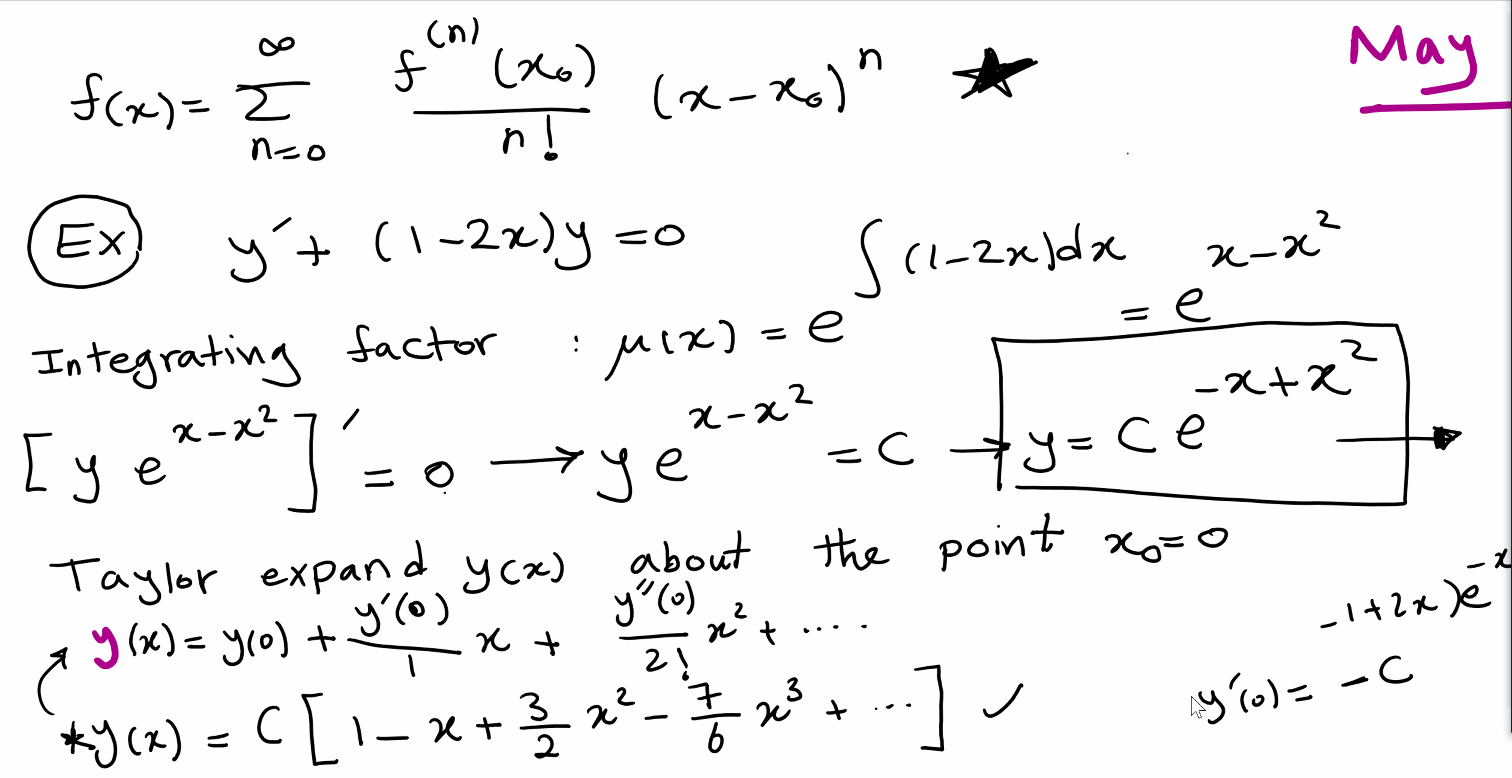 May
f(x) = ∑_{n=0}^{∞} f^{(n)}(x₀)/n! (x-x₀)^n ★
Ex y′ + (1-2x)y = 0
Integrating factor : μ(x) = e^{∫(1-2x)dx} = e^{x-x²}
[y e^{x-x²}]′ = 0 → y e^{x-x²} = C → y = C e^{-x+x²} →
Taylor expand y(x) about the point x₀=0
y(x) = y(0) + y′(0)/1 x + y″(0)/2! x² + ....
-1+2x)e^{-x
*y(x) = C [1 - x + 3/2 x² - 7/6 x³ + ...] ✓
y′(0) = -C